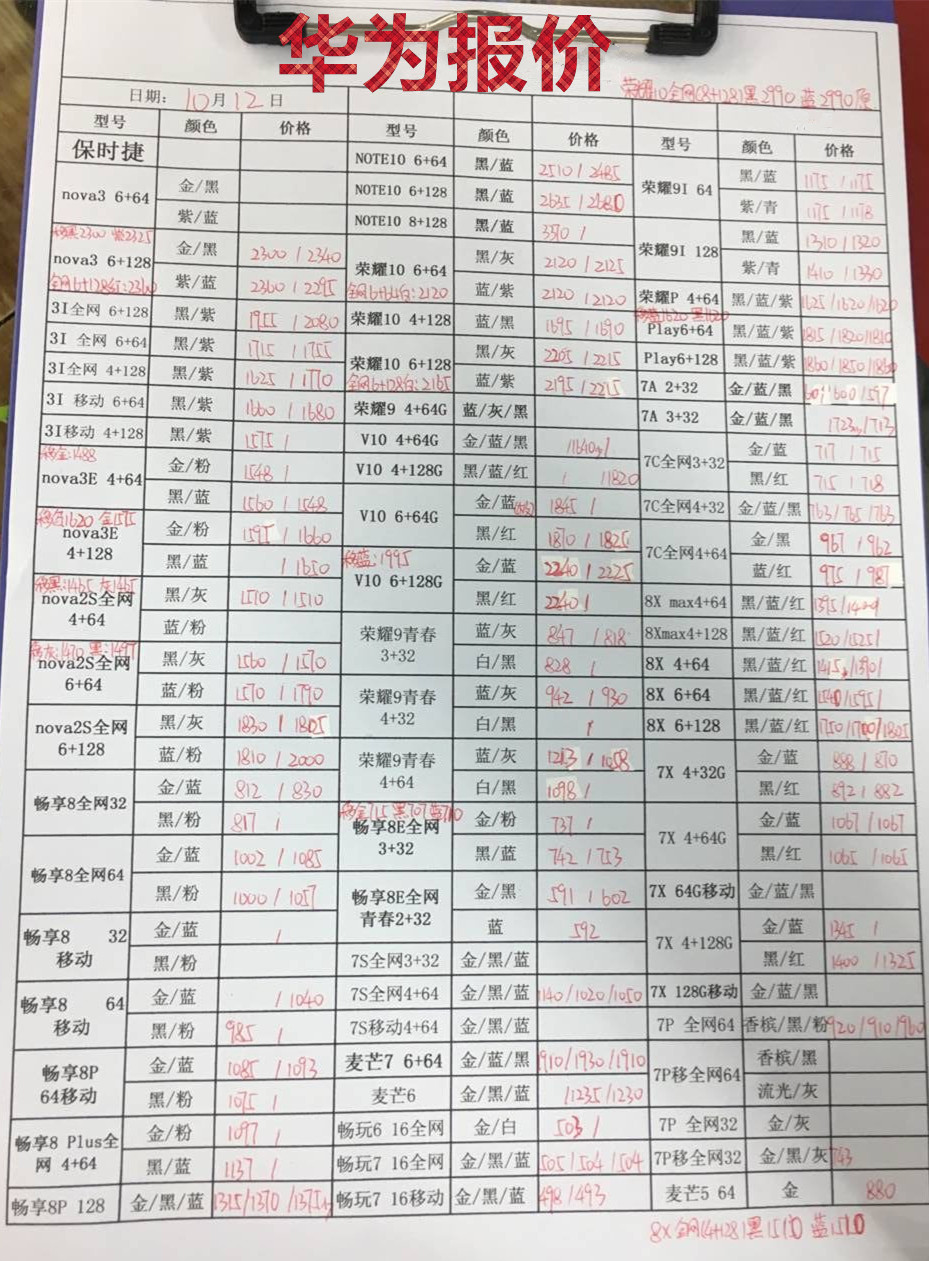 华为报价
荣耀10全网08+1281黑2990 蓝2990原
日期: 10月12日
型号 颜色 价格 型号 颜色 价格 型号 颜色 价格
保时捷
NOTE10 6+64 黑/蓝 2510 / 2485
荣耀9I 64 黑/蓝 1175 / 1175
nova3 6+64 金/黑
NOTE10 6+128 黑/蓝 2635 / 2680
紫/青 1175 / 1178
紫/蓝
NOTE10 8+128 黑/蓝
荣耀9I 128 黑/蓝 1310 / 1320
移黑2300 紫2325
nova3 6+128 金/黑 2300 / 2340
荣耀10 6+64 黑/灰 2120 / 2125
紫/青 1410 / 1330
全网6+128红:2360
紫/蓝 2360 / 2295
全网6+64白:2120
蓝/紫 2120 / 2120
荣耀P 4+64 黑/蓝/紫 1625 / 1620 / 1620
3I全网 6+128 黑/紫 1955 / 2080
荣耀10 4+128 蓝/黑 1695 / 1690
移蓝1620 黑1620
Play6+64 黑/蓝/紫 1815 / 1820 / 1810
3I 全网 6+64 黑/紫 1715 / 1755
荣耀10 6+128 黑/灰 2205 / 2215
Play6+128 黑/蓝/紫 1860 / 1850 / 1860
3I全网 4+128 黑/紫 1625 / 1770
全网6+128白:2165
蓝/紫 2195 / 2215
7A 2+32 金/蓝/黑 601 / 600 / 597
3I 移动 6+64 黑/紫 1660 / 1680
荣耀9 4+64G 蓝/灰/黑
7A 3+32 金/蓝/黑 / 723 / 713
3I移动 4+128 黑/紫 1575 /
V10 4+64G 金/蓝/黑 / 1640 /
7C全网3+32 金/蓝 717 / 715
移金:1488
nova3E 4+64 金/粉 1548 /
V10 4+128G 黑/蓝/红 / / 1820
黑/红 715 / 718
黑/蓝 1560 / 1548
V10 6+64G 金/蓝 1845 /
7C全网4+32 金/蓝/黑 763 / 765 / 763
移白1620 金1575
nova3E 4+128 金/粉 1595 / 1660
黑/红 1810 / 1825
7C全网4+64 金/黑 967 / 962
黑/蓝 / 1650
移蓝:1995
V10 6+128G 金/蓝 2240 / 2225
蓝/红 975 / 987
移黑:1465 灰1465
nova2S全网 4+64 黑/灰 1510 / 1510
黑/红 2240 /
8X max4+64 黑/蓝/红 1395 / 1409
蓝/粉
荣耀9青春 3+32 蓝/灰 847 / 818
8Xmax4+128 黑/蓝/红 1520 / 1525 /
移灰:1470 黑:1497
nova2S全网 6+64 黑/灰 1560 / 1570
白/黑 828 /
8X 4+64 黑/蓝/红 1415 / 1390 /
蓝/粉 1570 / 1790
荣耀9青春 4+32 蓝/灰 942 / 930
8X 6+64 黑/蓝/红 1540 / 1595 /
nova2S全网 6+128 黑/灰 1830 / 1805
白/黑 /
8X 6+128 黑/蓝/红 1750 / 1700 / 1805
蓝/粉 1810 / 2000
荣耀9青春 4+64 蓝/灰 1213 / 1058
7X 4+32G 金/蓝 888 / 870
畅享8全网32 金/蓝 812 / 830
白/黑 1098 /
黑/红 892 / 882
黑/粉 817 /
移金715 黑707 蓝710
畅享8E全网 3+32 金/粉 737 /
7X 4+64G 金/蓝 1067 / 1067
畅享8全网64 金/蓝 1002 / 1085
黑/蓝 742 / 753
黑/红 1065 / 1065
黑/粉 1000 / 1057
畅享8E全网 青春2+32 金/黑 591 / 602
7X 64G移动 金/蓝/黑
畅享8 32 移动 金/蓝 /
蓝 592
7X 4+128G 金/蓝 1345 /
黑/粉
7S全网3+32 金/黑/蓝
黑/红 1400 / 1325
畅享8 64 移动 金/蓝 / 1040
7S全网4+64 金/黑/蓝 1140 / 1020 / 1050
7X 128G移动 金/蓝/黑
黑/粉 985 /
7S移动4+64 金/黑/蓝
7P 全网64 香槟/黑/粉 920 / 910 / 960
畅享8P 64移动 金/蓝 1085 / 1093
麦芒7 6+64 金/蓝/黑 1910 / 1930 / 1910
7P移全网64 香槟/黑
黑/粉 1075 /
麦芒6 金/黑/蓝 / 1235 / 1230
流光/灰
畅享8 Plus全网 4+64 金/粉 1097 /
畅玩6 16全网 金/白 503 /
7P 全网32 金/灰
黑/蓝 1137 /
畅玩7 16全网 金/黑/蓝 505 / 504 / 504
7P移全网32 金/黑/灰 743
畅享8P 128 金/黑/蓝 1315 / 1370 / 1375
畅玩7 16移动 金/黑/蓝 498 / 493
麦芒5 64 金 880
8X全网4+128 黑1510 蓝1510